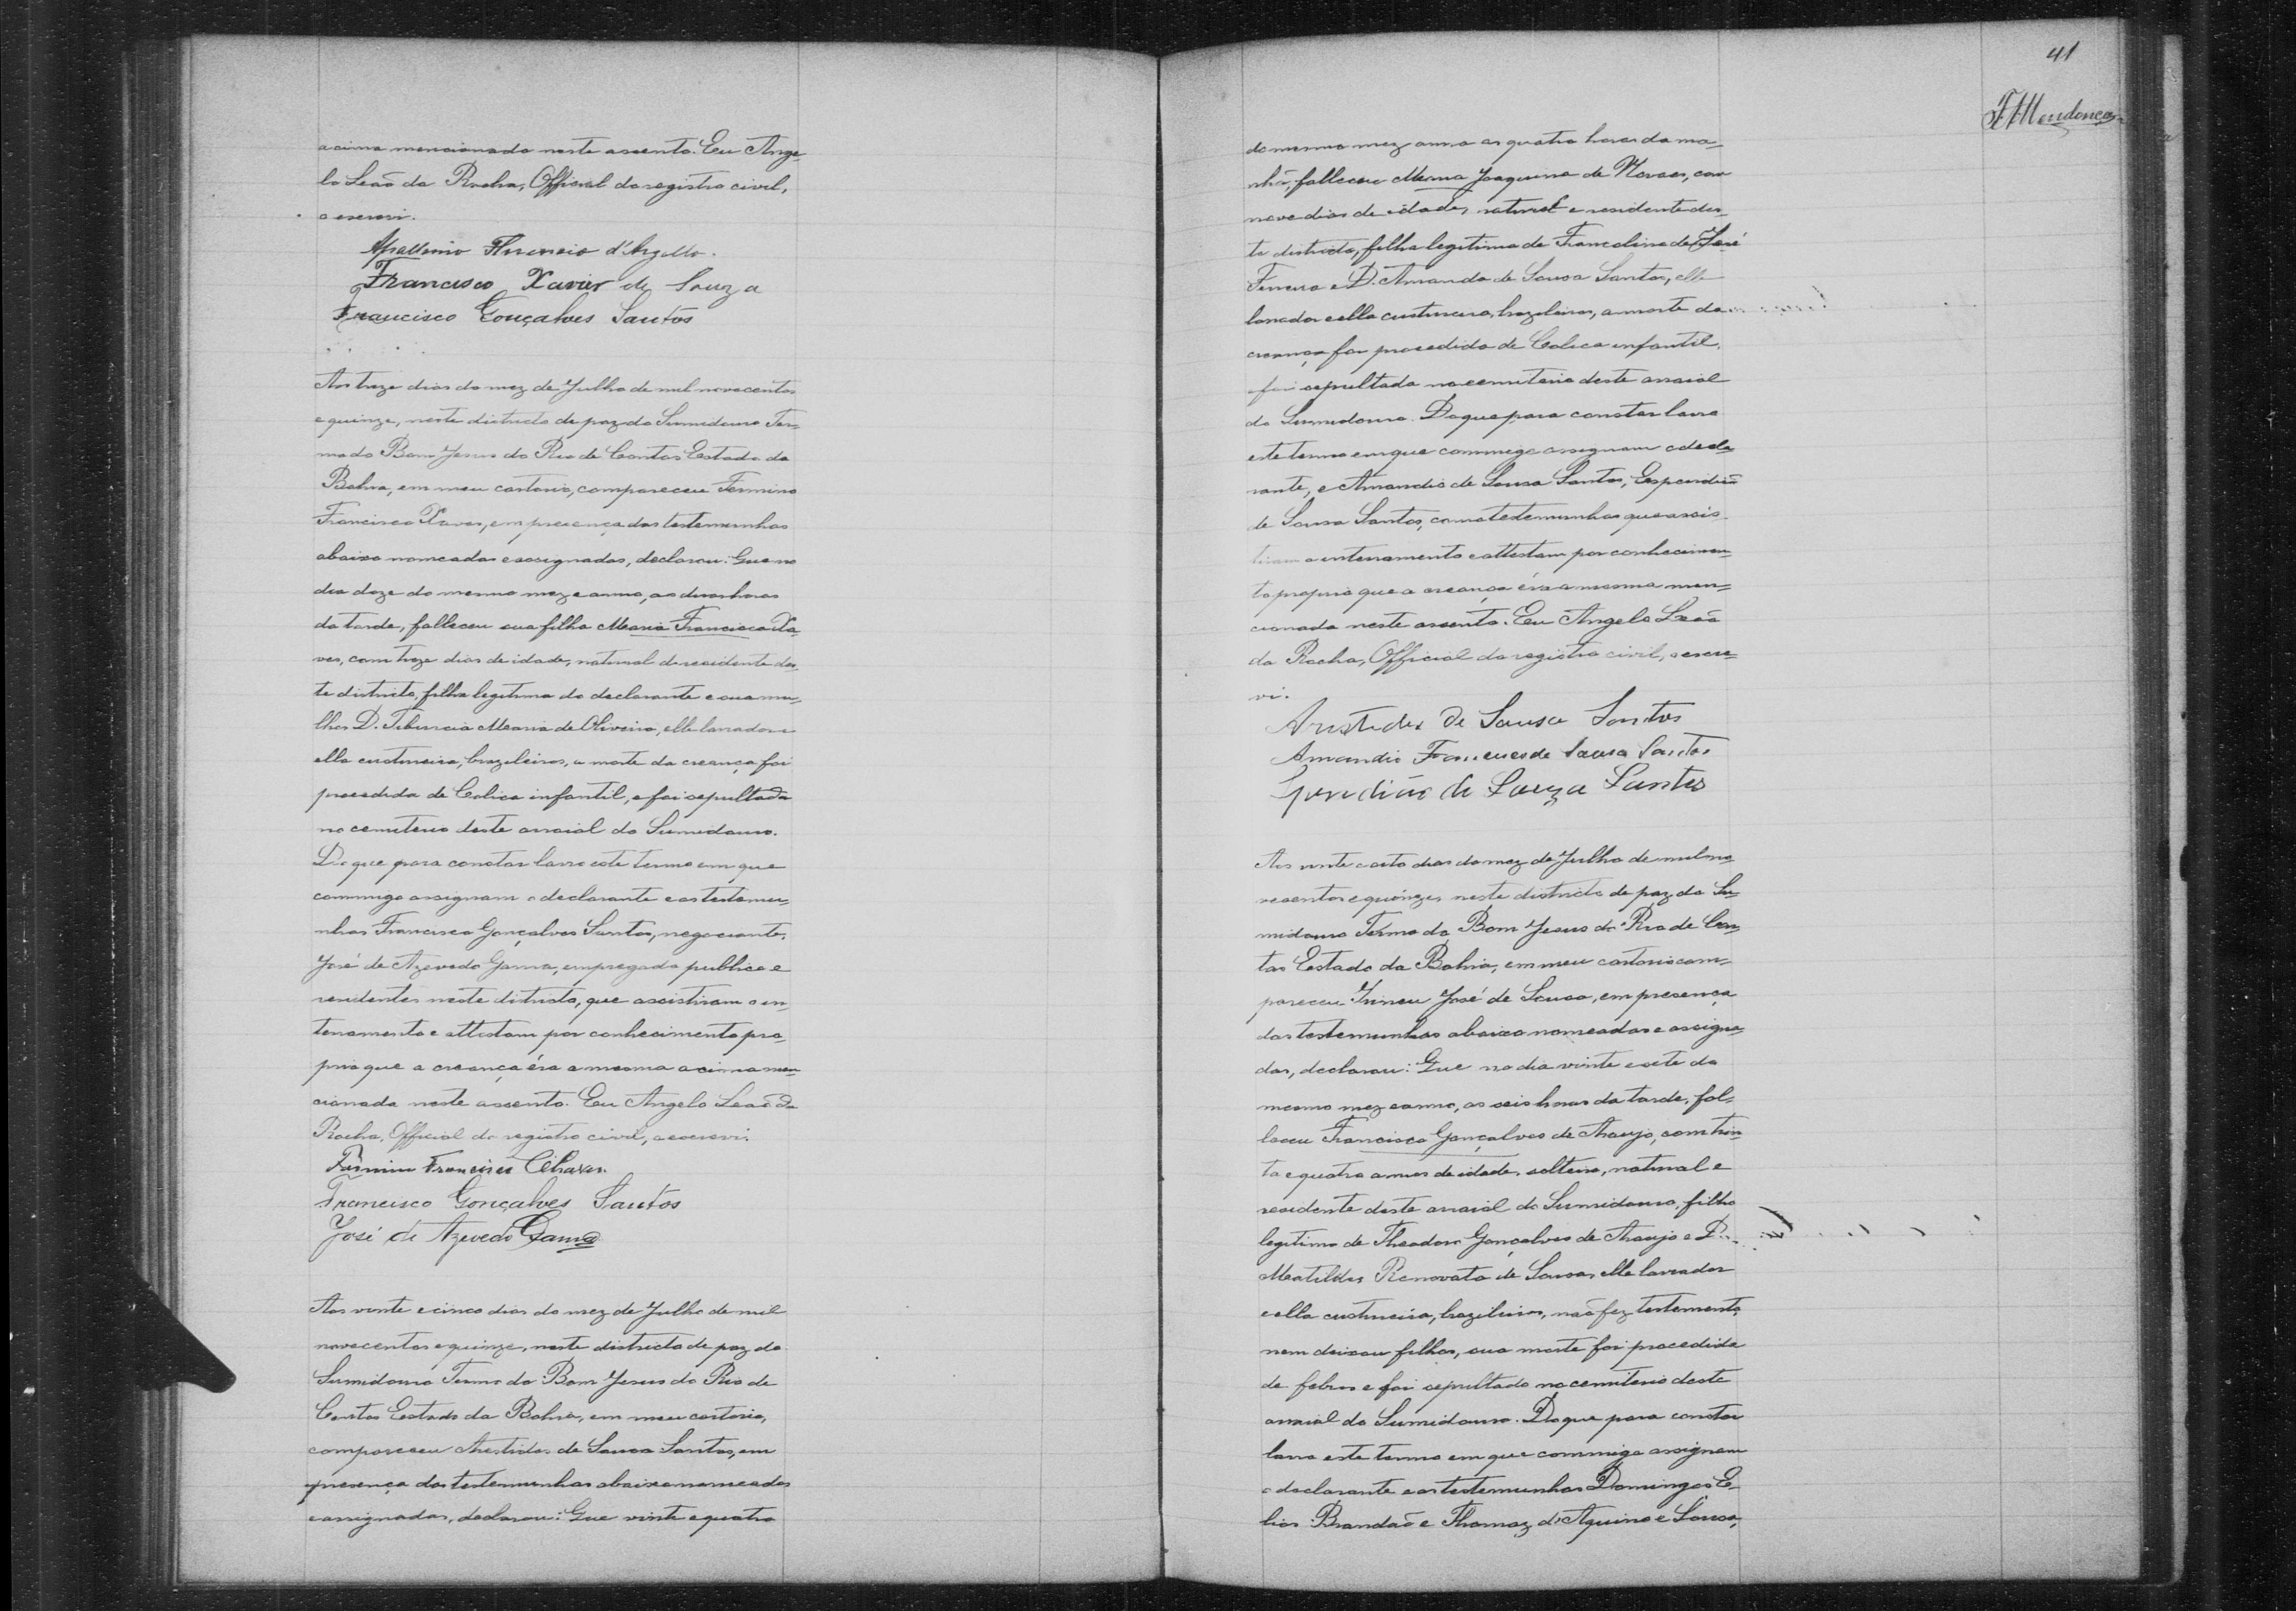 acima mencionado neste assento. Eu Ange
lo Leaõ da Rocha, Official do registro civil,
o escrevi.
Apollinio Florencio d'Argollo.
Francisco Xavier de Souza
Francisco Gonçalves Santos
Aos treze dias do mez de Julho de mil novecentos
e quinze, neste districto de paz do Sumidouro Ter-
mo do Bom Jesus do Rio de Contas Estado da
Bahia, em meu cartorio, compareceu Fermino
Francisco Xaves, em presença das testemunhas
abaixo nomeadas e assignadas, declarou: Que no
dia doze do mesmo mez e anno, as duas horas
da tarde, falleceu sua filha Maria Francisca Xa
ves, com treze dias de idade, natural de residente des-
te districto, filha legitima do declarante e sua mu-
lher D. Tiburcia Maria de Oliveira, elle lavrador e
ella custureira, brazileiros, a morte da creança foi
procedida de Colica infantil, e foi sepultada
no cemiterio deste arraial do Sumidouro.
Do que para constar lavro este termo em que
commigo assignam o declarante e as testemu-
nhas Francisco Gonçalves Santos, negociante,
José de Azevedo Gama, empregado publico e
residentes neste districto, que assistiram o en-
terramento e attestam por conhecimento pro-
prio que a creança éra a mesma acima men
cionada neste assento. Eu Angelo Leaõ da
Rocha, Official do registro civil, o escrevi.
Fermino Francisco Chaves.
Francisco Gonçalves Santos
José de Azevedo Gama
Aos vinte e cinco dias do mez de Julho de mil
novecentos e quinze, neste districto de paz do
Sumidouro Termo do Bom Jesus do Rio de
Contas Estado da Bahia, em meu cartorio,
compareceu Aristides de Sousa Santos, em
presença das testemunhas abaixo nomeadas
e assignadas, declarou: Que vinte e quatro
41
FMendonça
do mesmo mez anno as quatro horas da ma-
nhã, falleceu Maria Joaquina de Novaes, com
nove dias de idade, natural e residente des-
te districto, filha legitima de Francolino de José
Ferreira e D. Amanda de Sousa Santos, elle
lavrador e ella custureira, brazileiros, a morte da
creança foi procedida de Colica infantil.
foi sepultada no cemiterio deste arraial
do Sumidouro. Do que para constar lavro
este termo em que commigo assignam o decla
rante, e Amandio de Sousa Santos, Esperidiaõ
de Sousa Santos, como testemunhas que assis
tiram o enterramento e attestam por conhecimen-
to proprio que a creança éra a mesma men-
cionada neste assento. Eu Angelo Leaõ
da Rocha, Official do registro civil, o escre-
vi.
Aristides de Sousa Santos
Amandio Francisco de Sousa Santos
Speridião de Souza Santos
Aos vinte e oito dias do mez de Julho de mil no
vecentos e quinze, neste districto de paz do Su-
midouro Termo do Bom Jesus do Rio de Con-
tas Estado da Bahia, em meu cartorio com-
pareceu Irineu José de Sousa, em presença
das testemunhas abaixo nomeadas e assigna-
das, declarou: Que no dia vinte e sete do
mesmo mez e anno, as seis horas da tarde, fal-
leceu Francisco Gonçalves de Araujo, com trin-
ta e quatro annos de idade, solteiro, natural e
residente deste arraial do Sumidouro, filho
legitimo de Theodoro Gonçalves de Araujo e D.
Matildes Renovata de Sousa, elle lavrador
e ella custureira, brazileiros, naõ fez testamento
nem deixou filhos, sua morte foi procedida
de febres e foi sepultado no cemiterio deste
arraial do Sumidouro. Do que para constar
lavro este termo em que commigo assignam
o declarante e as testemunhas Domingos E-
lias Brandaõ e Thomaz d'Aquino e Sousa,